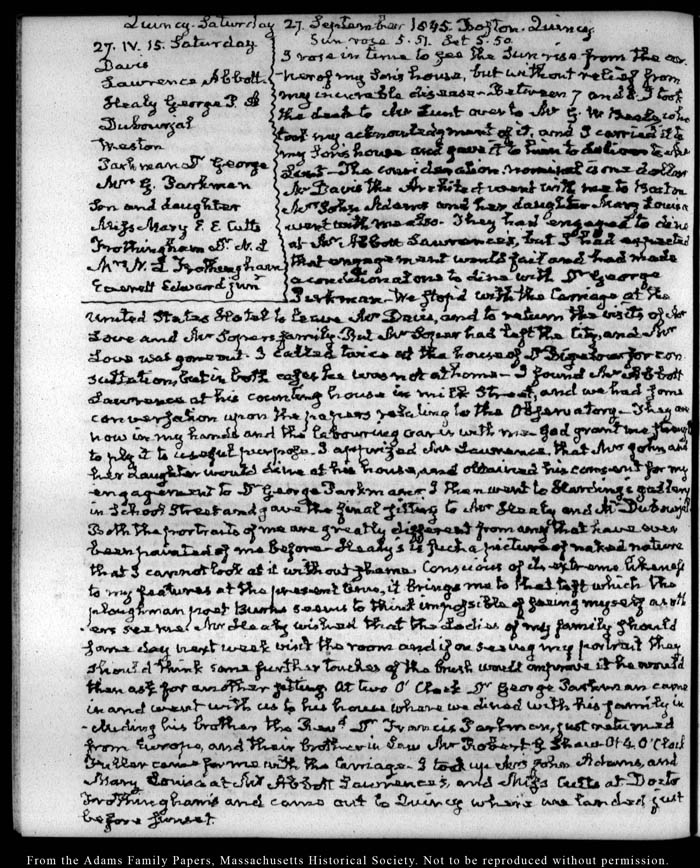 Quincy. Saturday 27. September 1845. Boston. Quincy
27. IV. 15. Saturday
Davis
Lawrence Abbott.
Healy George P. A
Dubourjal
Weston
Parkman Dr. George
Mrs G. Parkman
Son and daughter
Miss Mary E. E. Cutts
Frothingham Dr. N. L
Mrs N. L Frothingham
Everett Edward junr
Sun rose 5.51. Set 5.50.
I rose in time to see the Sun rise from the cor-
ner of my Son's house, but without relief from
my incurable disease. Between 7 and 8. I took
the deed to Mr Lunt over to Mr G. W. Beale who
took my acknowledgment of it, and I carried it to
my Son's house and gave it to him to deliver to Mr
Lunt. The consideration nominal is one dollar
Mr Davis the Architect went with me to Boston
Mrs John Adams and her daughter Mary Louisa
went with me also. They had engaged to dine
at Mr Abbott Lawrence's, but I had expected
that engagement would fail and had made
a conditional one to dine with Dr George
Parkman. We stop'd with the Carriage at the
United States Hotel to leave Mr Davis, and to return the visits of Mr
Love and Mr Soper's family. But Mr Soper had left the City, and Mr
Love was gone out. I called twice at the house of Dr Bigelow for con-
sultation, but in both cases he was not at home. I found Mr Abbott
Lawrence at his counting house in milk Street, and we had some
conversation upon the papers relating to the Observatory. They are
now in my hands and the labouring oar is with me. God grant me strength
to ply it to useful purpose. I apprized Mr Lawrence, that Mrs John and
her daughter would dine at his house, and obtained his consent for my
engagement to Dr George Parkman. I then went to Harding's gallery
in School Street and gave the final sitting to Mr Healy and Mr Dubourjal
Both the portraits of me are greatly different from any that have ever
been painted of me before. Healy's is such a picture of naked nature
that I cannot look at it without shame. Conscious of its extreme likeness
to my features at the present time, it brings me to that test which the
ploughman poet Burns seems to think impossible of seeing myself as oth-
ers see me. Mr Healy wished that the Ladies of my family should
some day next week visit the room and if on seeing my portrait they
should think some further touches of the brush would improve it he would
then ask for another sitting. At two O'Clock Dr George Parkman came
in and went with us to his house where we dined with his family in-
cluding his brother the Revd. Dr Francis Parkman, just returned
from Europe, and their brother in Law Mr Robert G Shaw. At 4. O'Clock
Fuller came for me with the Carriage. I took up Mrs John Adams, and
Mary Louisa at Mr Abbott Lawrence's, and Miss Cutts at Doctr
Frothingham's and came out to Quincy where we landed just
before sunset.
From the Adams Family Papers, Massachusetts Historical Society. Not to be reproduced without permission.